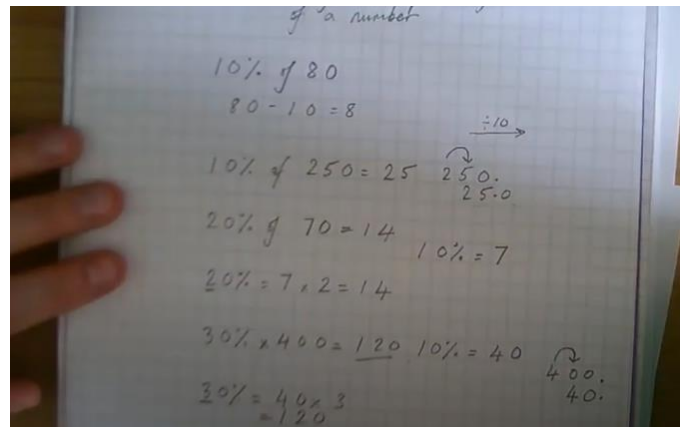 of a number
10% of 80
80 - 10 = 8
÷10
10% of 250 = 25 250.
25.0
20% of 70 = 14
10% = 7
20% = 7 x 2 = 14
30% x 400 = 120 10% = 40
400.
40.
30% = 40 x 3
= 120